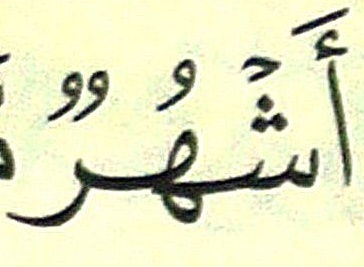 أَشْهُرٌ